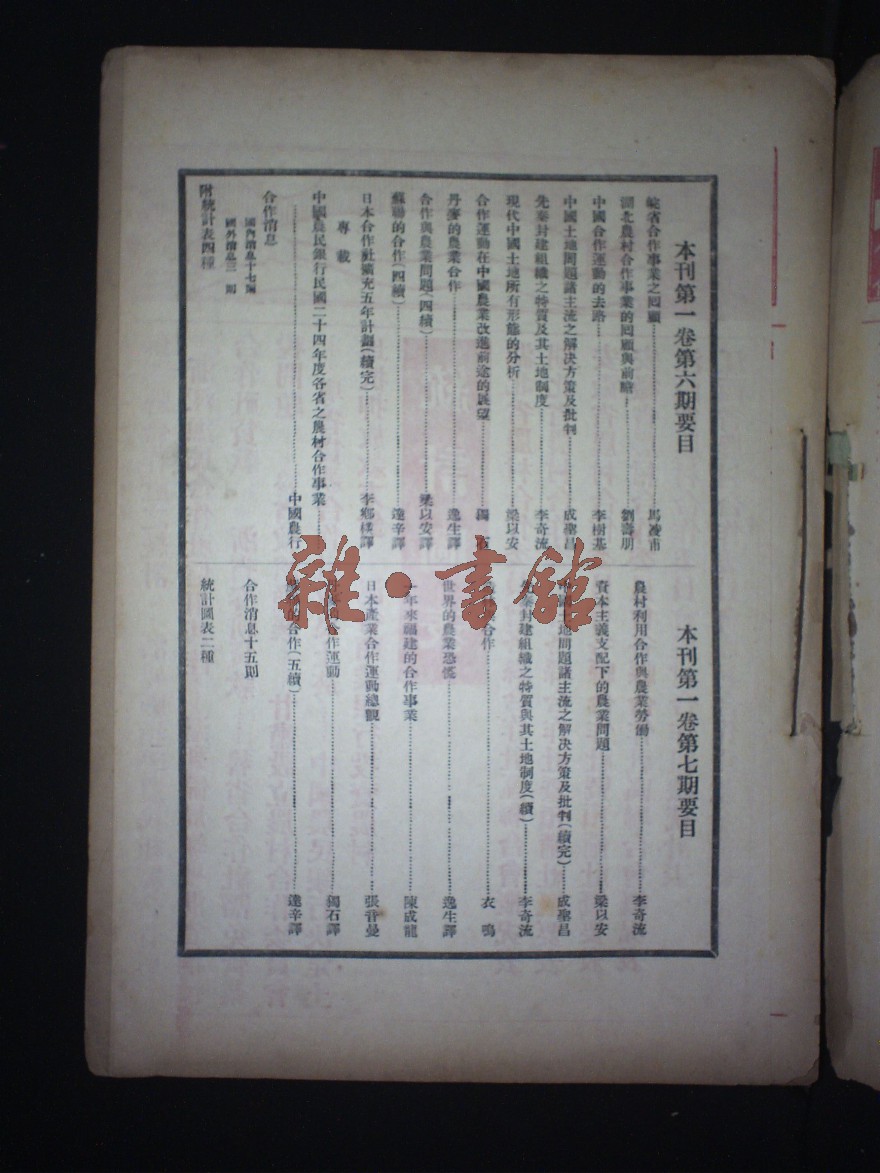 本刊第一卷第六期要目
皖省合作事業之囘顧……馬凌甫
湖北農村合作事業的囘顧與前瞻……劉壽朋
中國合作運動的去路……李樹基
中國土地問題諸主流之解決方策及批判……成聖昌
先秦封建組織之特質及其土地制度……李奇流
現代中國土地所有形態的分析……梁以安
合作運動在中國農業改進前途的展望……獨
丹麥的農業合作……逸生譯
合作與農業問題(四續)……梁以安譯
蘇聯的合作(四續)……達辛譯
日本合作社擴充五年計劃(續完)……李鄉樸譯
專載
中國農民銀行民國二十四年度各省之農村合作事業……
……中國農行
合作消息
國內消息十七則
國外消息三則
附統計表四種
本刊第一卷第七期要目
農村利用合作與農業勞働……李奇流
資本主義支配下的農業問題……梁以安
土地問題諸主流之解決方策及批判(續完)……成聖昌
秦封建組織之特質與其土地制度(續)……李奇流
合作……衣鳴
世界的農業恐慌……逸生譯
年來福建的合作事業……陳成龍
日本產業合作運動總觀……張晉曼
合作運動……獨石譯
的合作(五續)……達辛譯
合作消息十五則
統計圖表二種
雜·書館